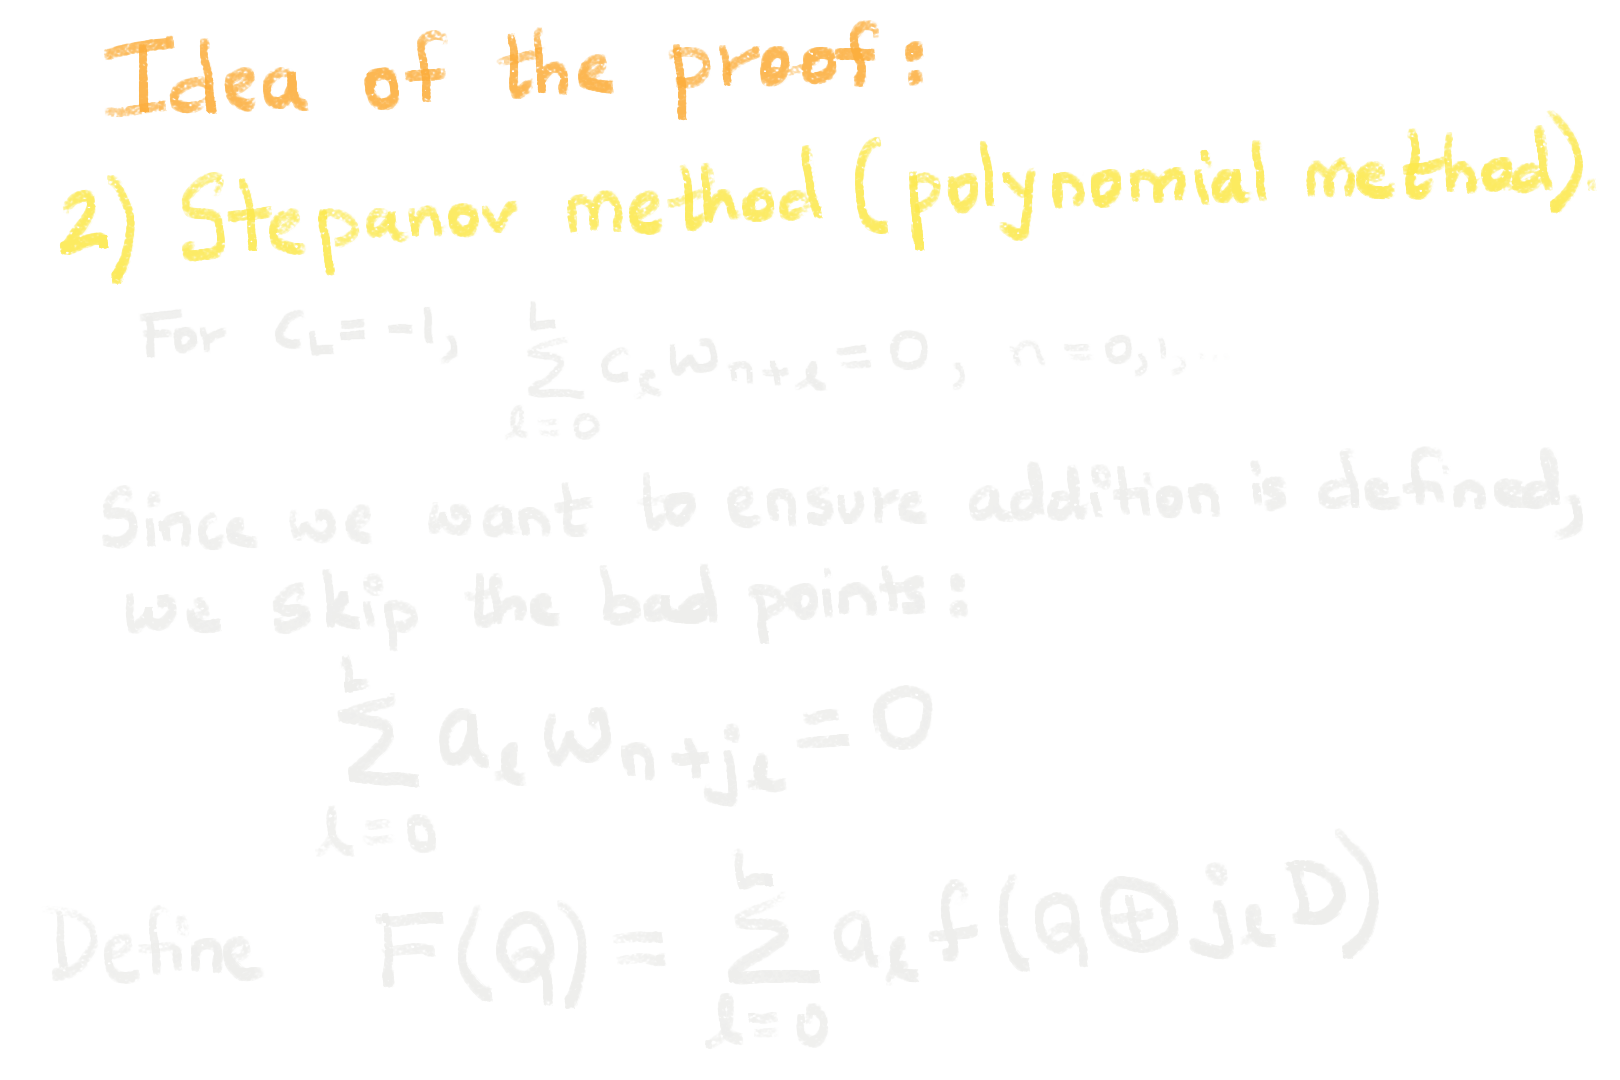 Idea of the proof:
2) Stepanov method (polynomial method).
For c_L = -1, \sum_{l=0}^{L} c_l w_{n+l} = 0, n = 0, 1, ...
Since we want to ensure addition is defined,
we skip the bad points:
\sum_{l=0}^{L} a_l w_{n+j_l} = 0
Define F(Q) = \sum_{l=0}^{L} a_l f(Q ⊕ j_l D)